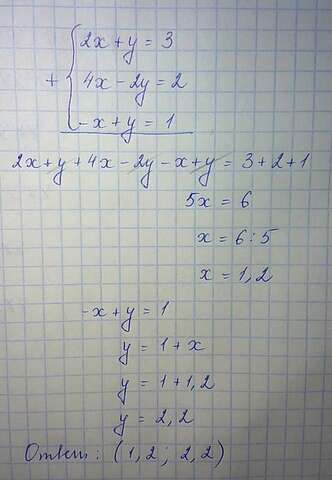 2x + y = 3
+ 4x - 2y = 2
-x + y = 1
2x + y + 4x - 2y - x + y = 3 + 2 + 1
5x = 6
x = 6 : 5
x = 1,2
-x + y = 1
y = 1 + x
y = 1 + 1,2
y = 2,2
Ответ: (1,2 ; 2,2)